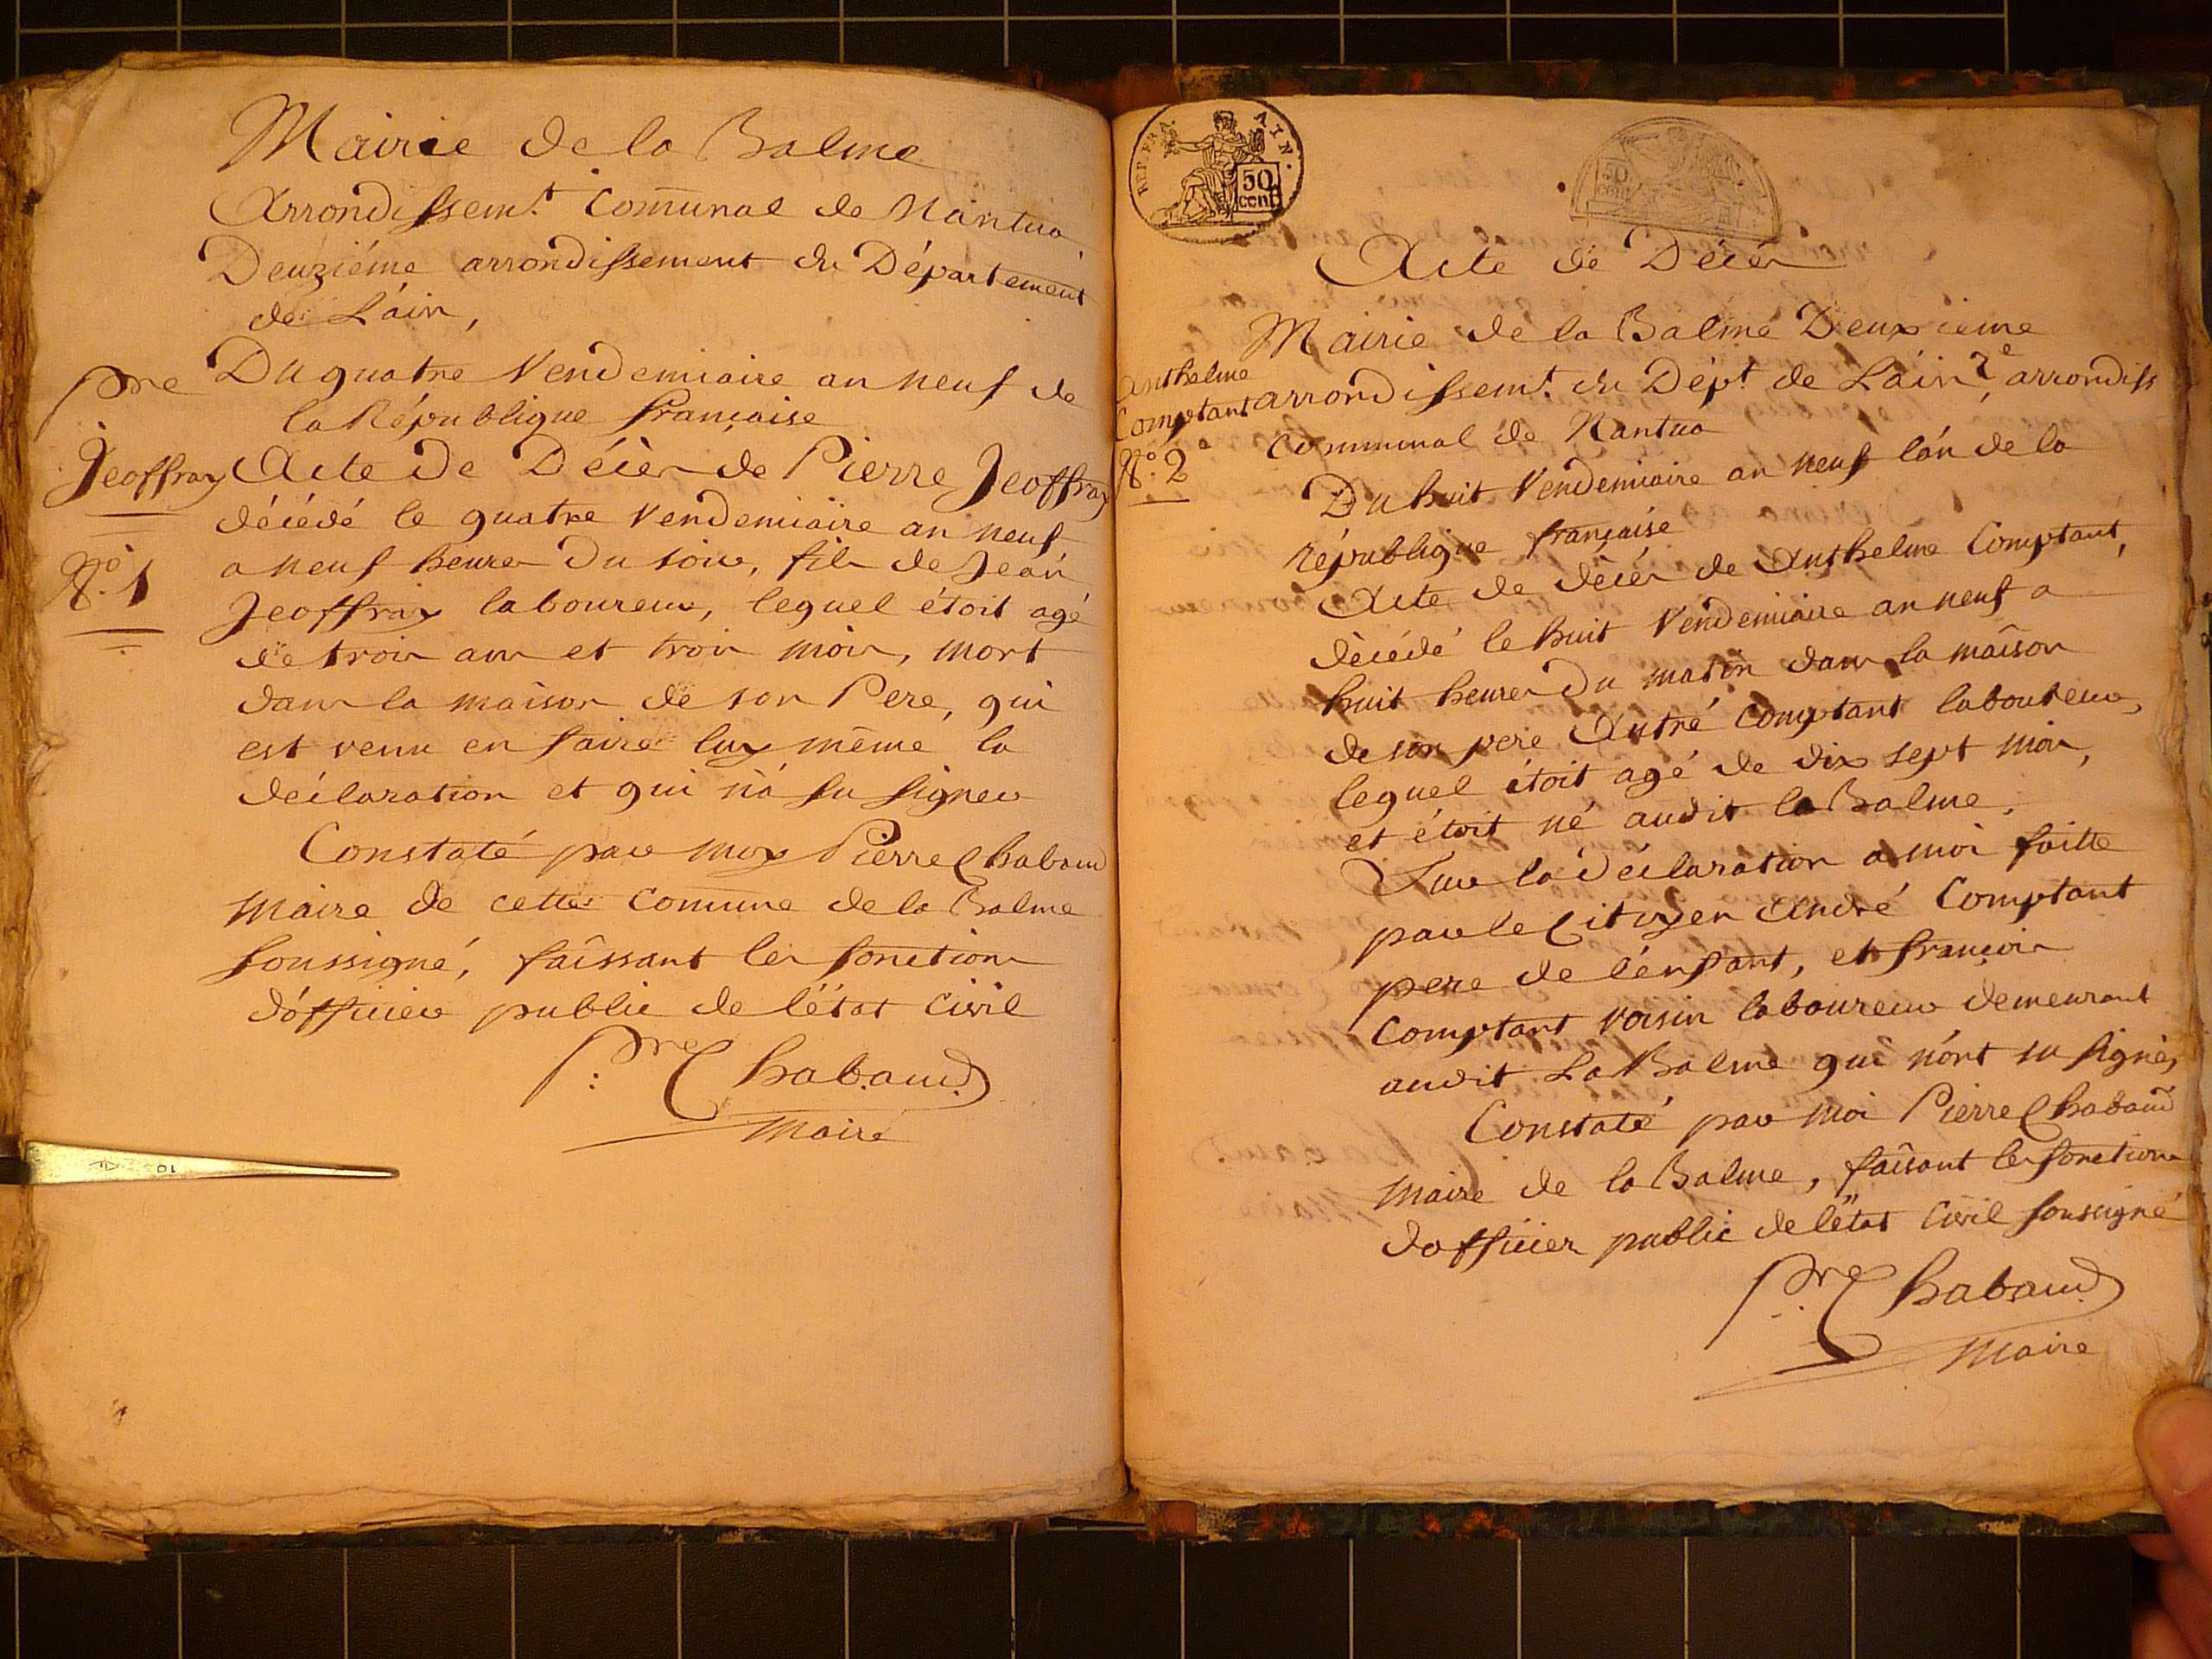 Mairie de la Balme
Arrondissem.t Comunal de Nantua
Deuziéme arrondissement du Département
de L'ain,
Du quatre Vendemiaire an neuf de
la République française
Pre
Jeoffray
N.o 1
Acte De Décès de Pierre Jeoffray
décédé le quatre Vendemiaire an neuf
a neuf heures Du soir, fils de Jean
Jeoffray laboureur, lequel étoit agé
de trois ans et trois mois, mort
dans la maison de son Pere, qui
est venu en faire luy même la
déclaration et qui n'a su signer
Constaté par moy Pierre Chabaud
Maire de cette Comune de la Balme
soussigné, faîssant les fonctions
d'officier public de l'état Civil
P.re Chabaud
Maire
REP. FRA. AIN.
50 cent
50 cent
Acte de Décès
Anthelme
Comptant
N.o 2
Mairie de la Balme Deuxieme
arrondissem.t du Dép.t de L'ain, 2e arrondiss
Communal de Nantua
Du huit Vendemiaire an neuf l'an de la
République française
Acte de décès de Anthelme Comptant,
décédé le huit Vendemiaire an neuf a
huit heures Du matin dans la maîson
de son pere Autré Comptant laboureur,
lequel étoit agé de dix sept mois,
et étoit né audit la Balme,
Sur la déclaration a moi faitte
par le Citoyen André Comptant
pere de l'enfant, et françois
Comptant voisin laboureur demeurant
audit La Balme qui n'ont su signés,
Constaté par moi Pierre Chabaud
Maire de la Balme, faîsant les fonctions
d'officier public de l'état Civil soussigné
P.re Chabaud
Maire